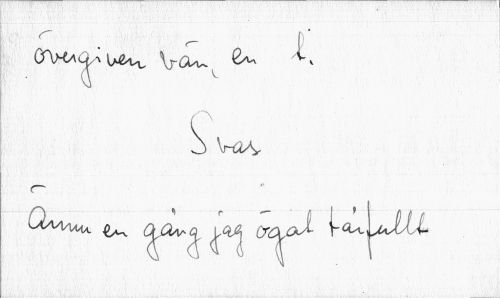 övergiven vän, en t.
Svas
Ännu en gång jag ögat tårfullt